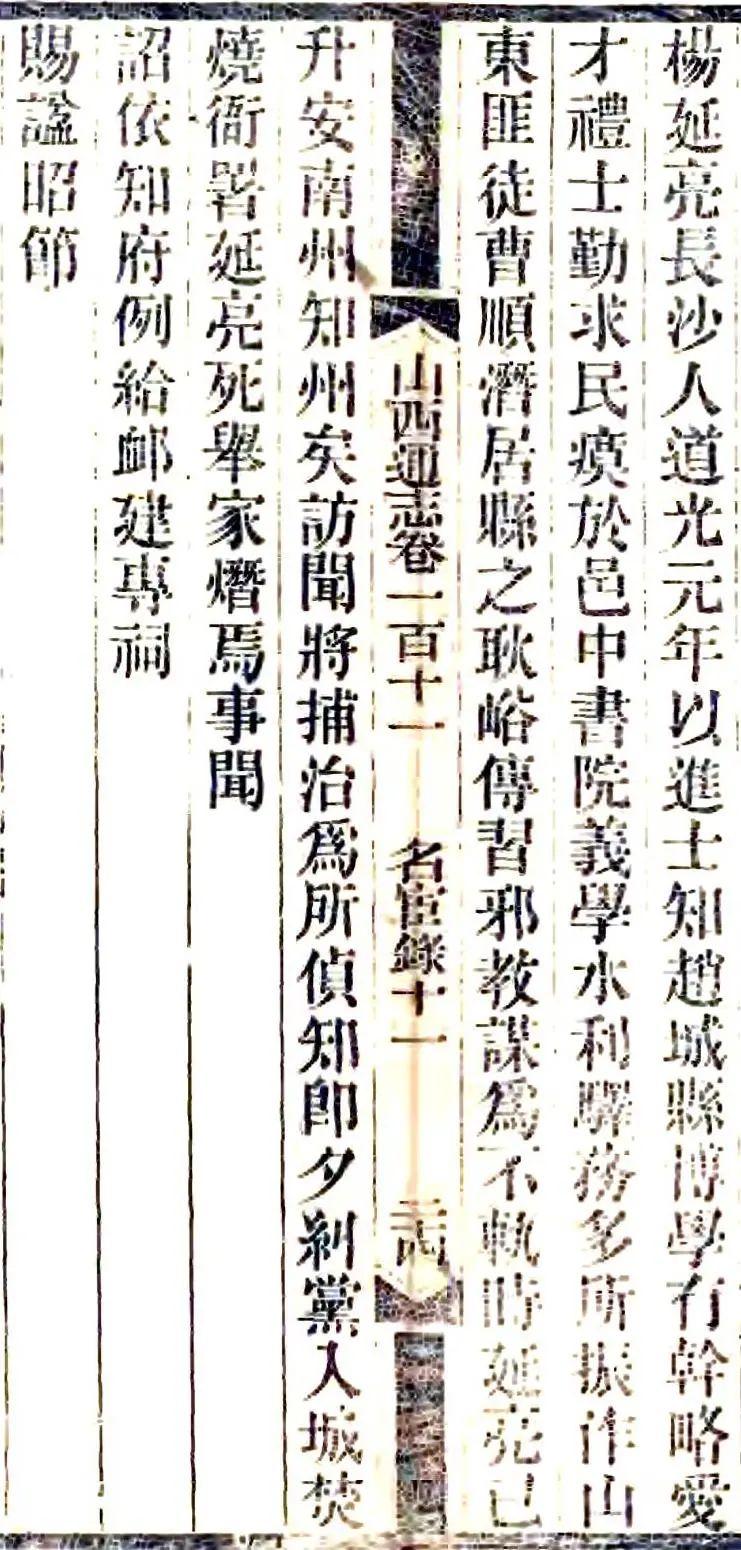 楊延亮長沙人道光元年以進士知趙城縣博學有幹略愛
才禮士勤求民瘼於邑中書院義學水利驛務多所振作山
東匪徒曹順潛居縣之耿峪傳習邪教謀為不軌時延亮已
山西通志卷一百十一 名宦錄十一 二十四
升安南州知州矣訪聞將捕治為所偵知即夕糾黨入城焚
燒衙署延亮死舉家燼焉事聞
詔依知府例給卹建專祠
賜諡昭節